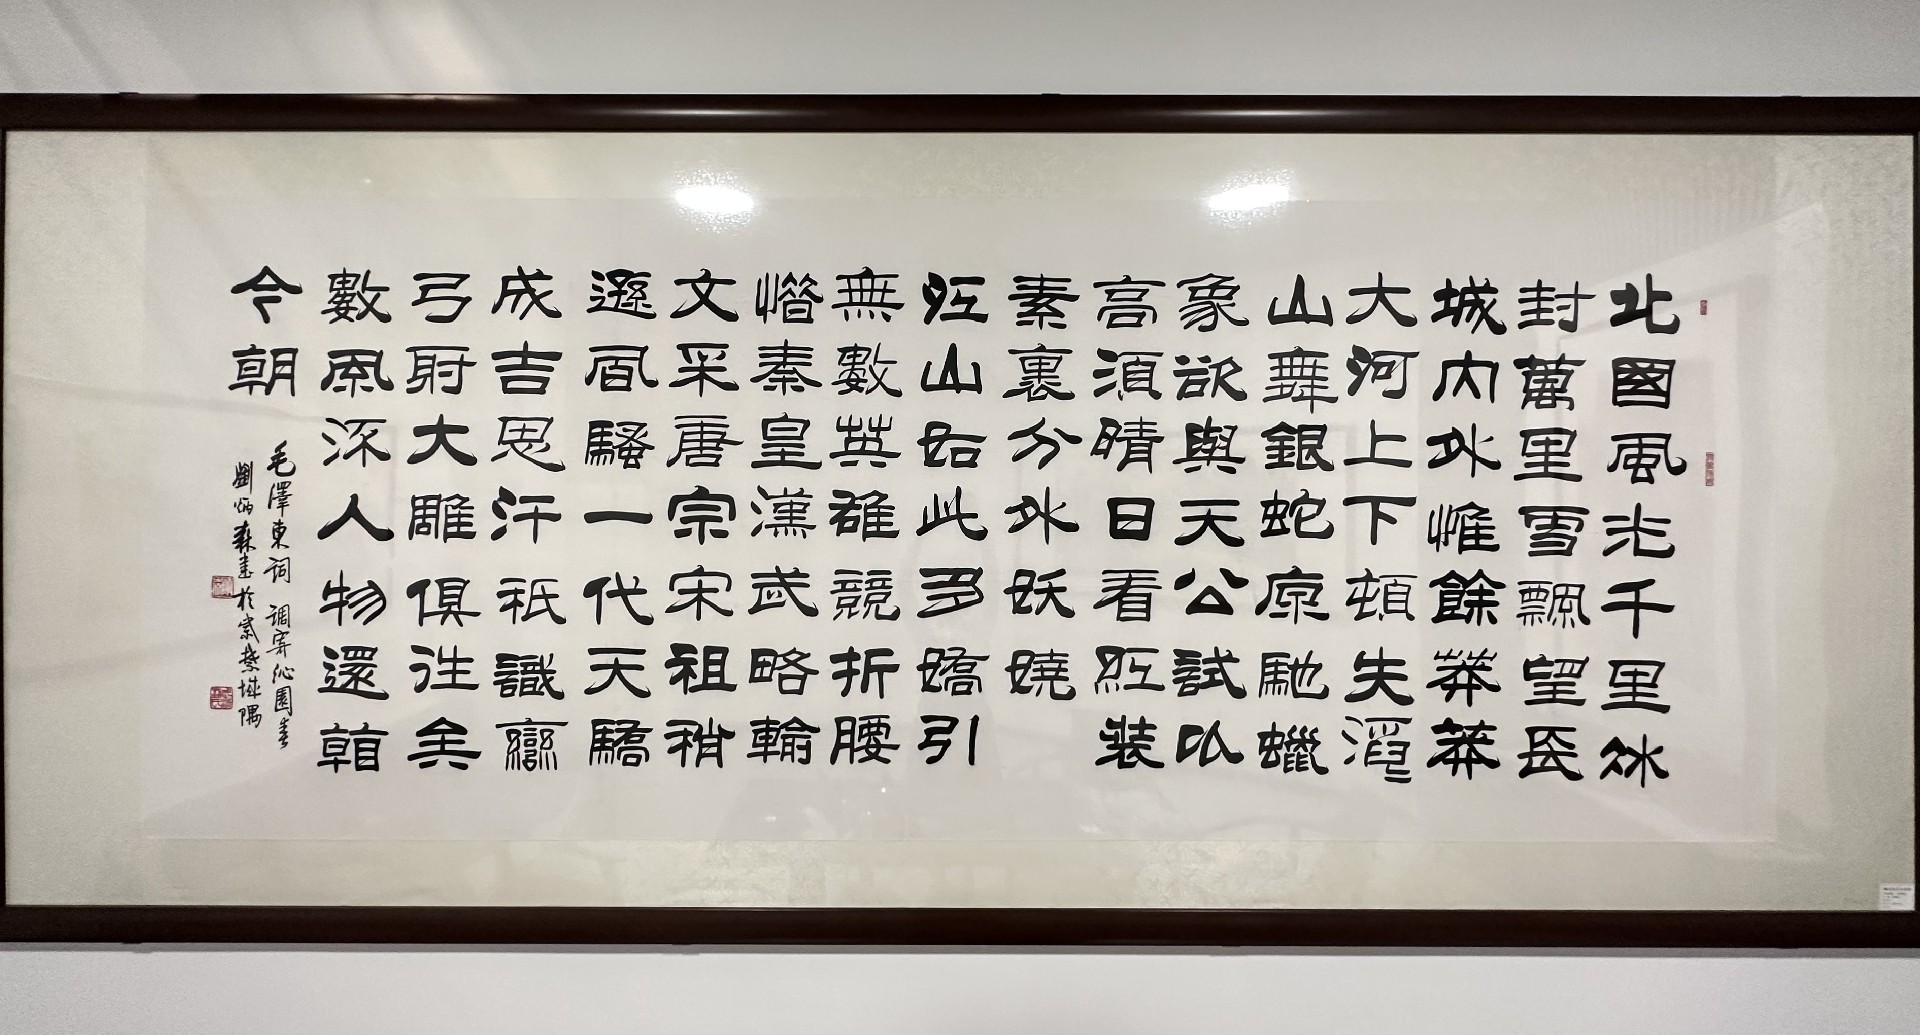 北國風光千里冰
封萬里雪飄望長
城内外惟餘莽莽
大河上下頓失滔〻
山舞銀蛇原馳蠟
象欲與天公試比
高須晴日看紅裝
素裏分外妖嬈
江山如此多嬌引
無數英雄競折腰
惜秦皇漢武略輸
文采唐宗宋祖稍
遜風騷一代天驕
成吉思汗祇識彎
弓射大雕俱往矣
數風流人物還看
今朝
毛澤東詞 调寄沁園春
劉炳森書於紫禁城隅